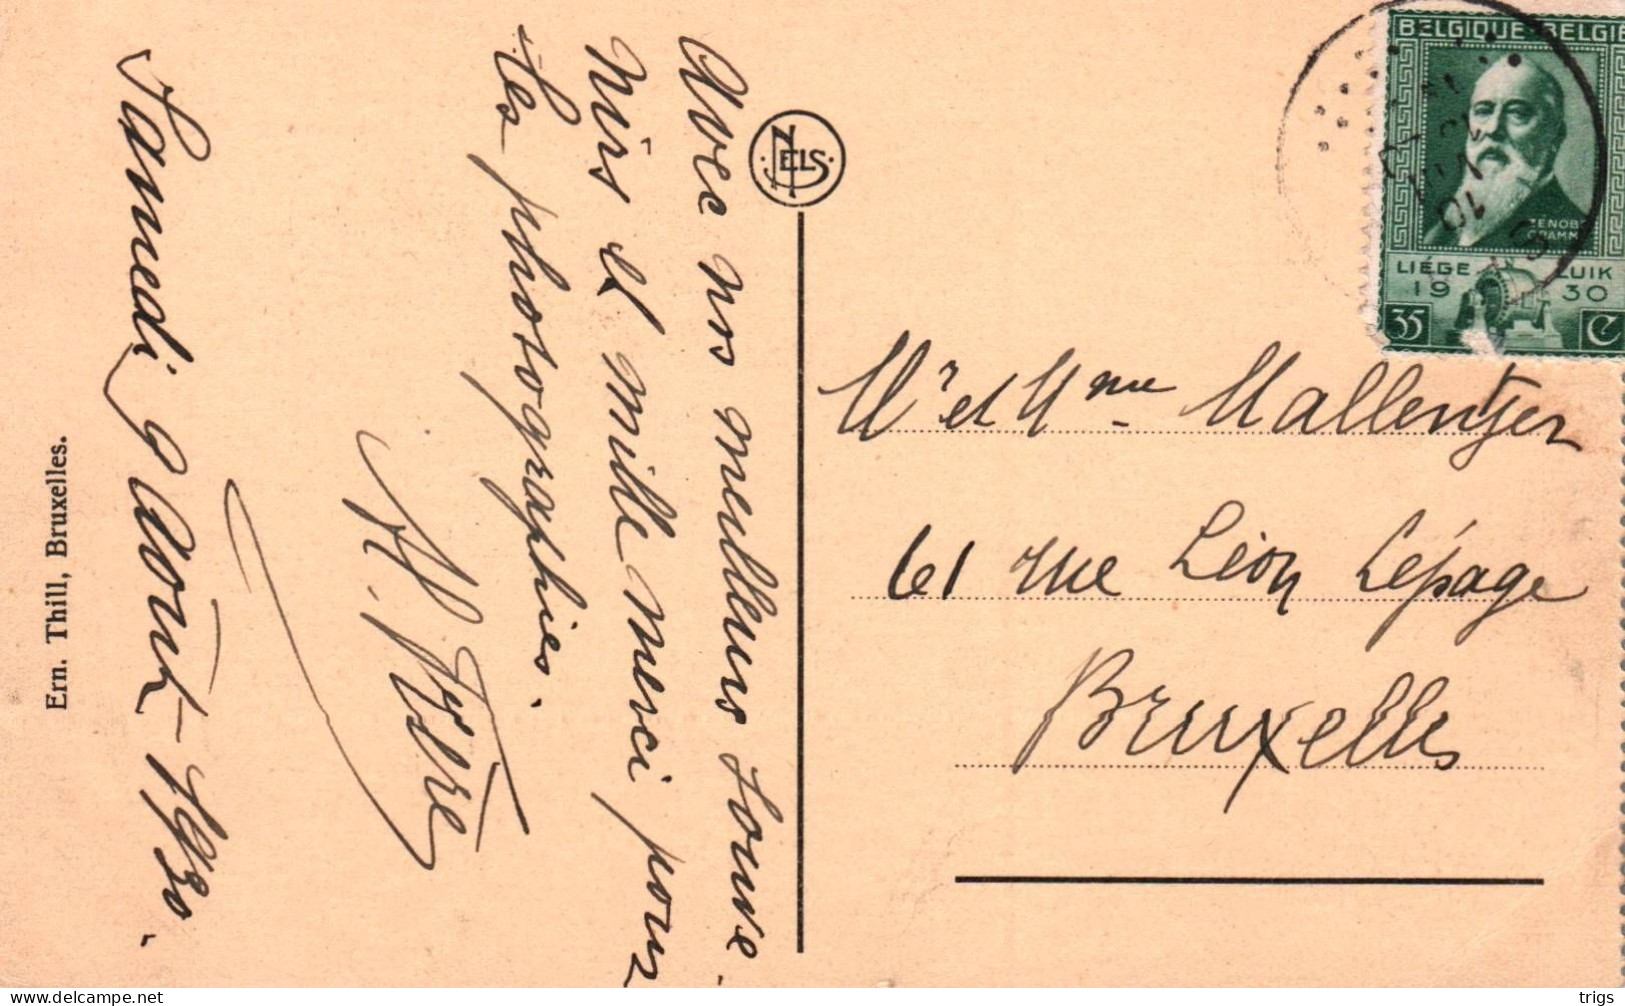 Avec nos meilleurs Souve-
nirs et mille merci pour
les photographies.
Samedi 9 Août 1930.
Ern. Thill, Bruxelles.
NELS
BELGIQUE-BELGIË
ZENOBE
GRAMME
LIÉGE LUIK
1930
35 C
10
Mr et Mme Mallentjer
61 rue Léon Lepage
Bruxelles
trigs